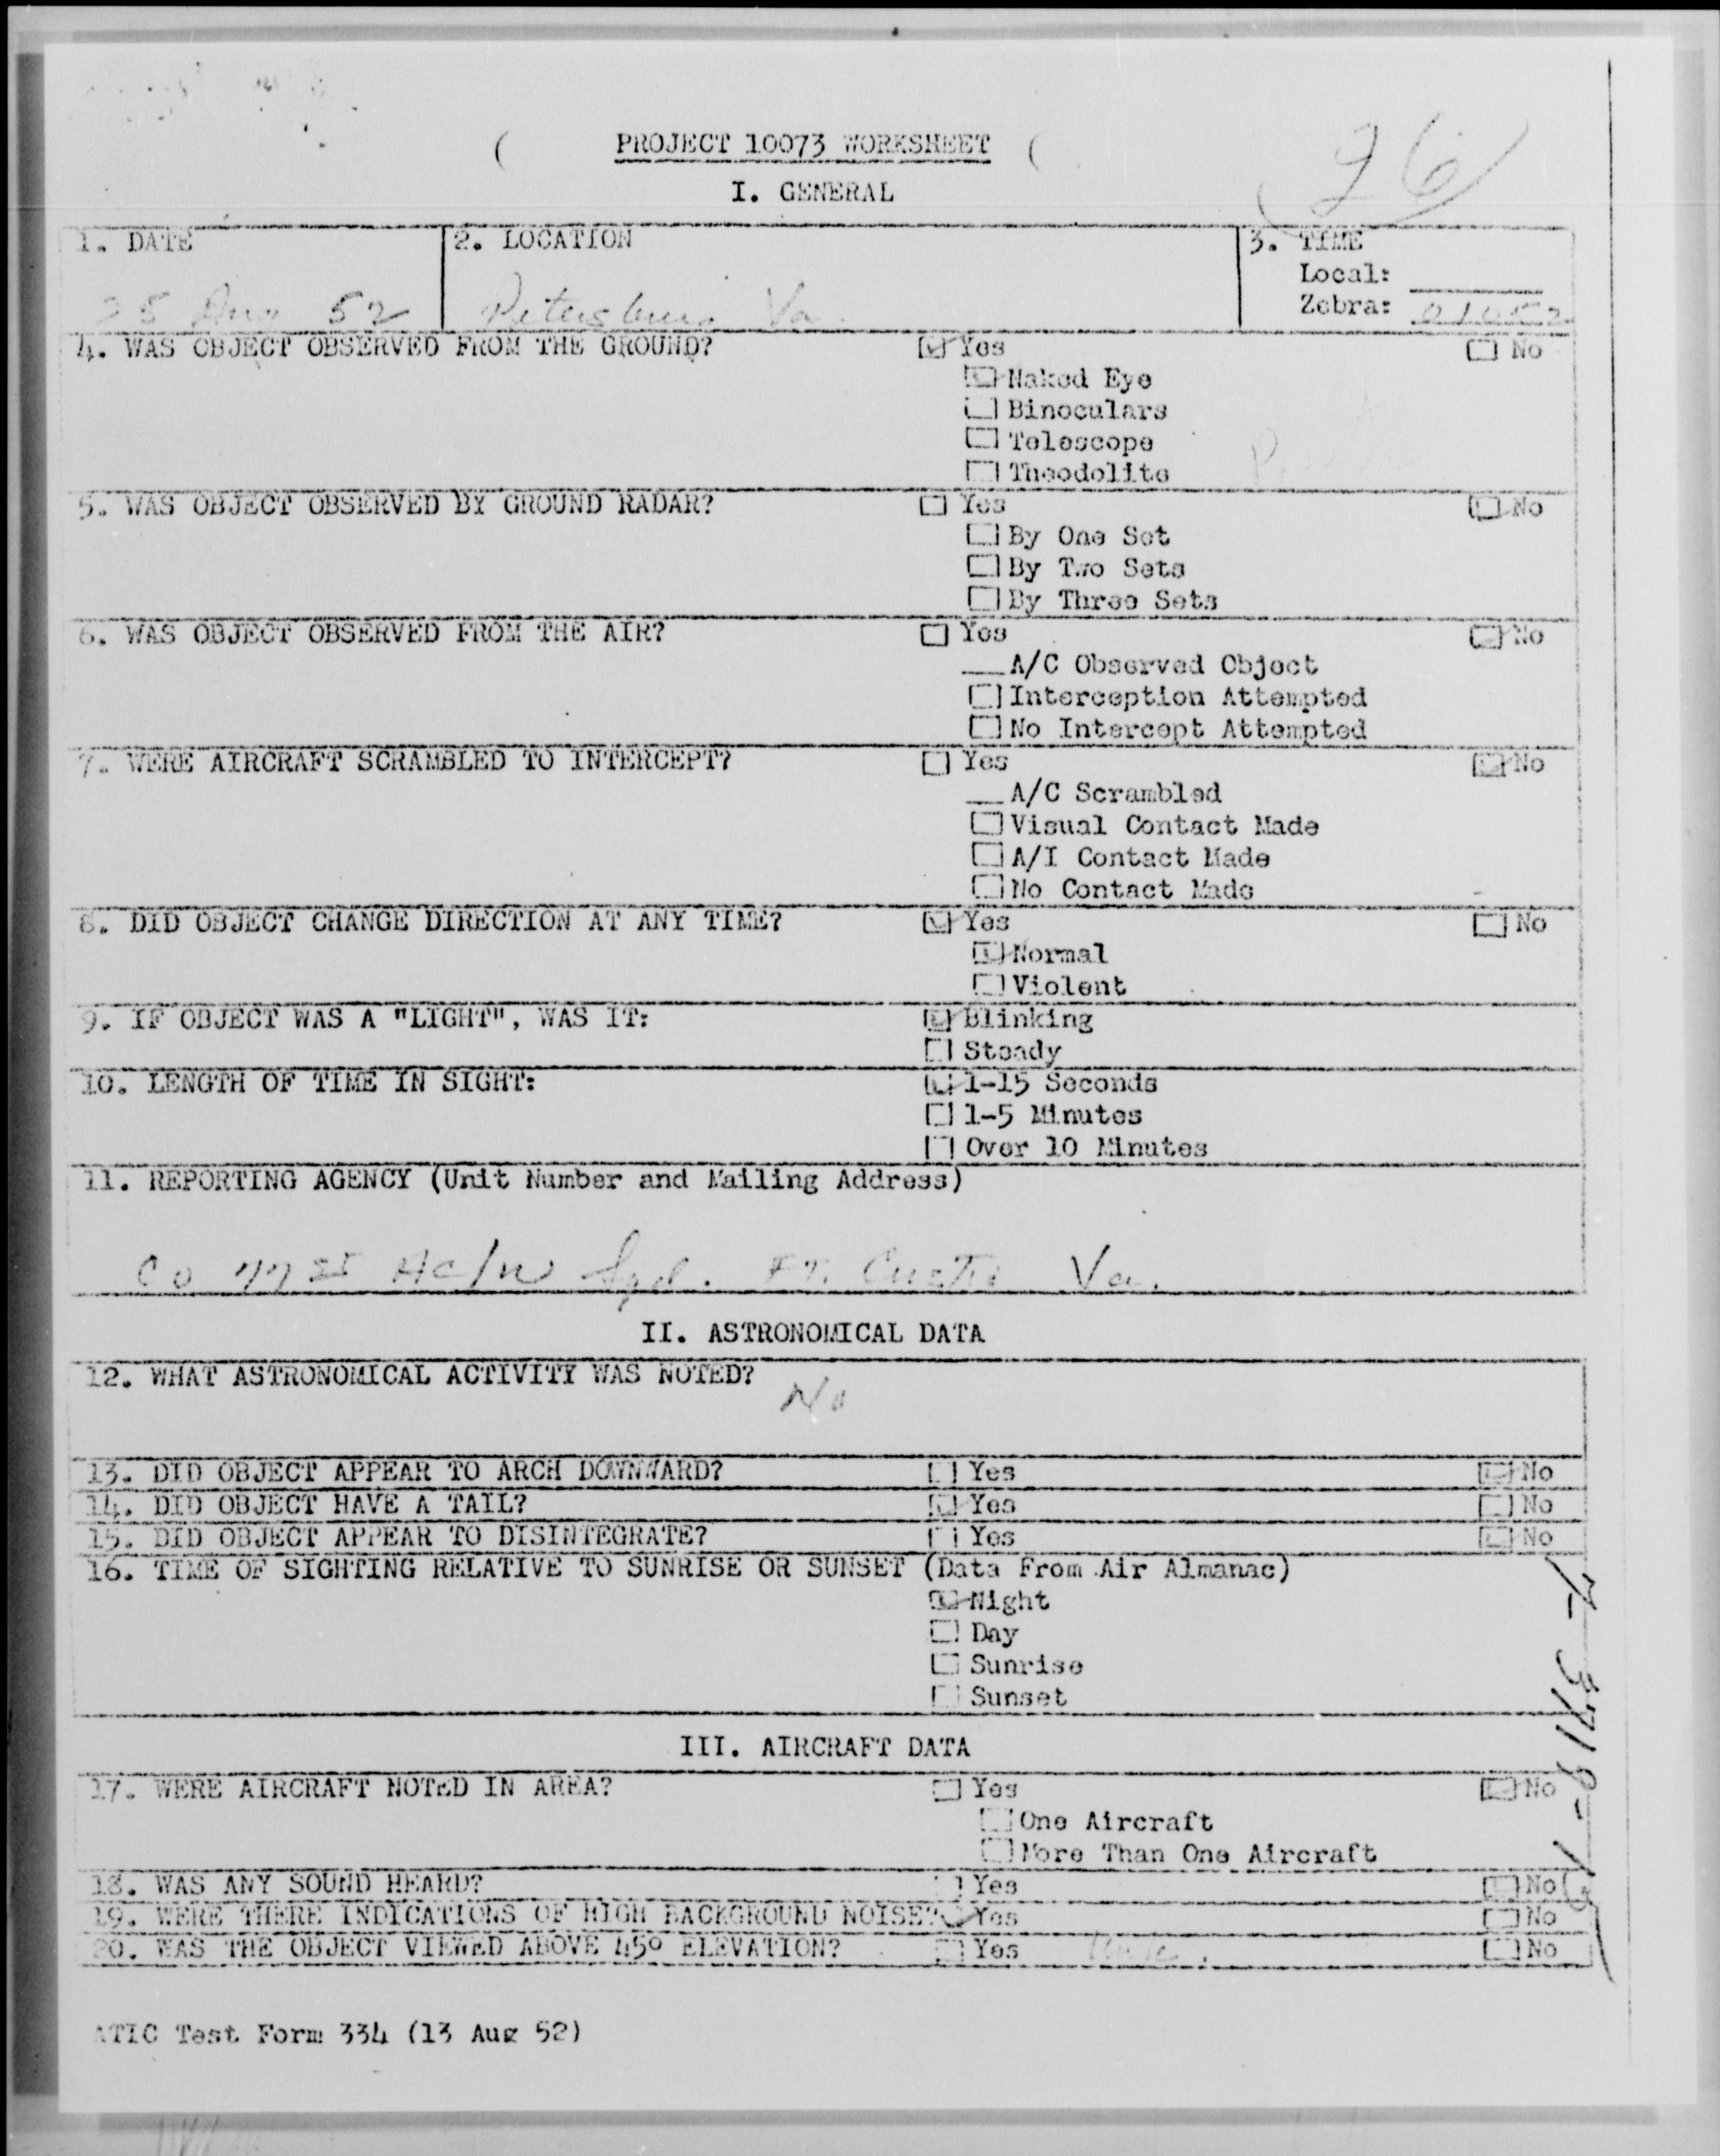 PROJECT 10073 WORKSHEET
26
I. GENERAL
1. DATE
2. LOCATION
3. TIME
Local:
25 Aug 52
Petersburg Va.
Zebra:
4. WAS OBJECT OBSERVED FROM THE GROUND?
Yes
No
Naked Eye
Binoculars
Telescope
Theodolite
5. WAS OBJECT OBSERVED BY GROUND RADAR?
Yes
No
By One Set
By Two Sets
By Three Sets
6. WAS OBJECT OBSERVED FROM THE AIR?
Yes
No
A/C Observed Object
Interception Attempted
No Intercept Attempted
7. WERE AIRCRAFT SCRAMBLED TO INTERCEPT?
Yes
No
A/C Scrambled
Visual Contact Made
A/I Contact Made
No Contact Made
8. DID OBJECT CHANGE DIRECTION AT ANY TIME?
Yes
No
Normal
Violent
9. IF OBJECT WAS A "LIGHT", WAS IT:
Blinking
Steady
10. LENGTH OF TIME IN SIGHT:
1-15 Seconds
1-5 Minutes
Over 10 Minutes
11. REPORTING AGENCY (Unit Number and Mailing Address)
CO 771st AC/W Sqd. Ft. Custis Va.
II. ASTRONOMICAL DATA
12. WHAT ASTRONOMICAL ACTIVITY WAS NOTED?
No
13. DID OBJECT APPEAR TO ARCH DOWNWARD?
Yes
No
14. DID OBJECT HAVE A TAIL?
Yes
No
15. DID OBJECT APPEAR TO DISINTEGRATE?
Yes
No
16. TIME OF SIGHTING RELATIVE TO SUNRISE OR SUNSET (Data From Air Almanac)
Night
Day
Sunrise
Sunset
III. AIRCRAFT DATA
17. WERE AIRCRAFT NOTED IN AREA?
Yes
No
One Aircraft
More Than One Aircraft
18. WAS ANY SOUND HEARD?
Yes
No
19. WERE THERE INDICATIONS OF HIGH BACKGROUND NOISE?
Yes
No
20. WAS THE OBJECT VIEWED ABOVE 45° ELEVATION?
Yes
No
ATIC Test Form 334 (13 Aug 52)